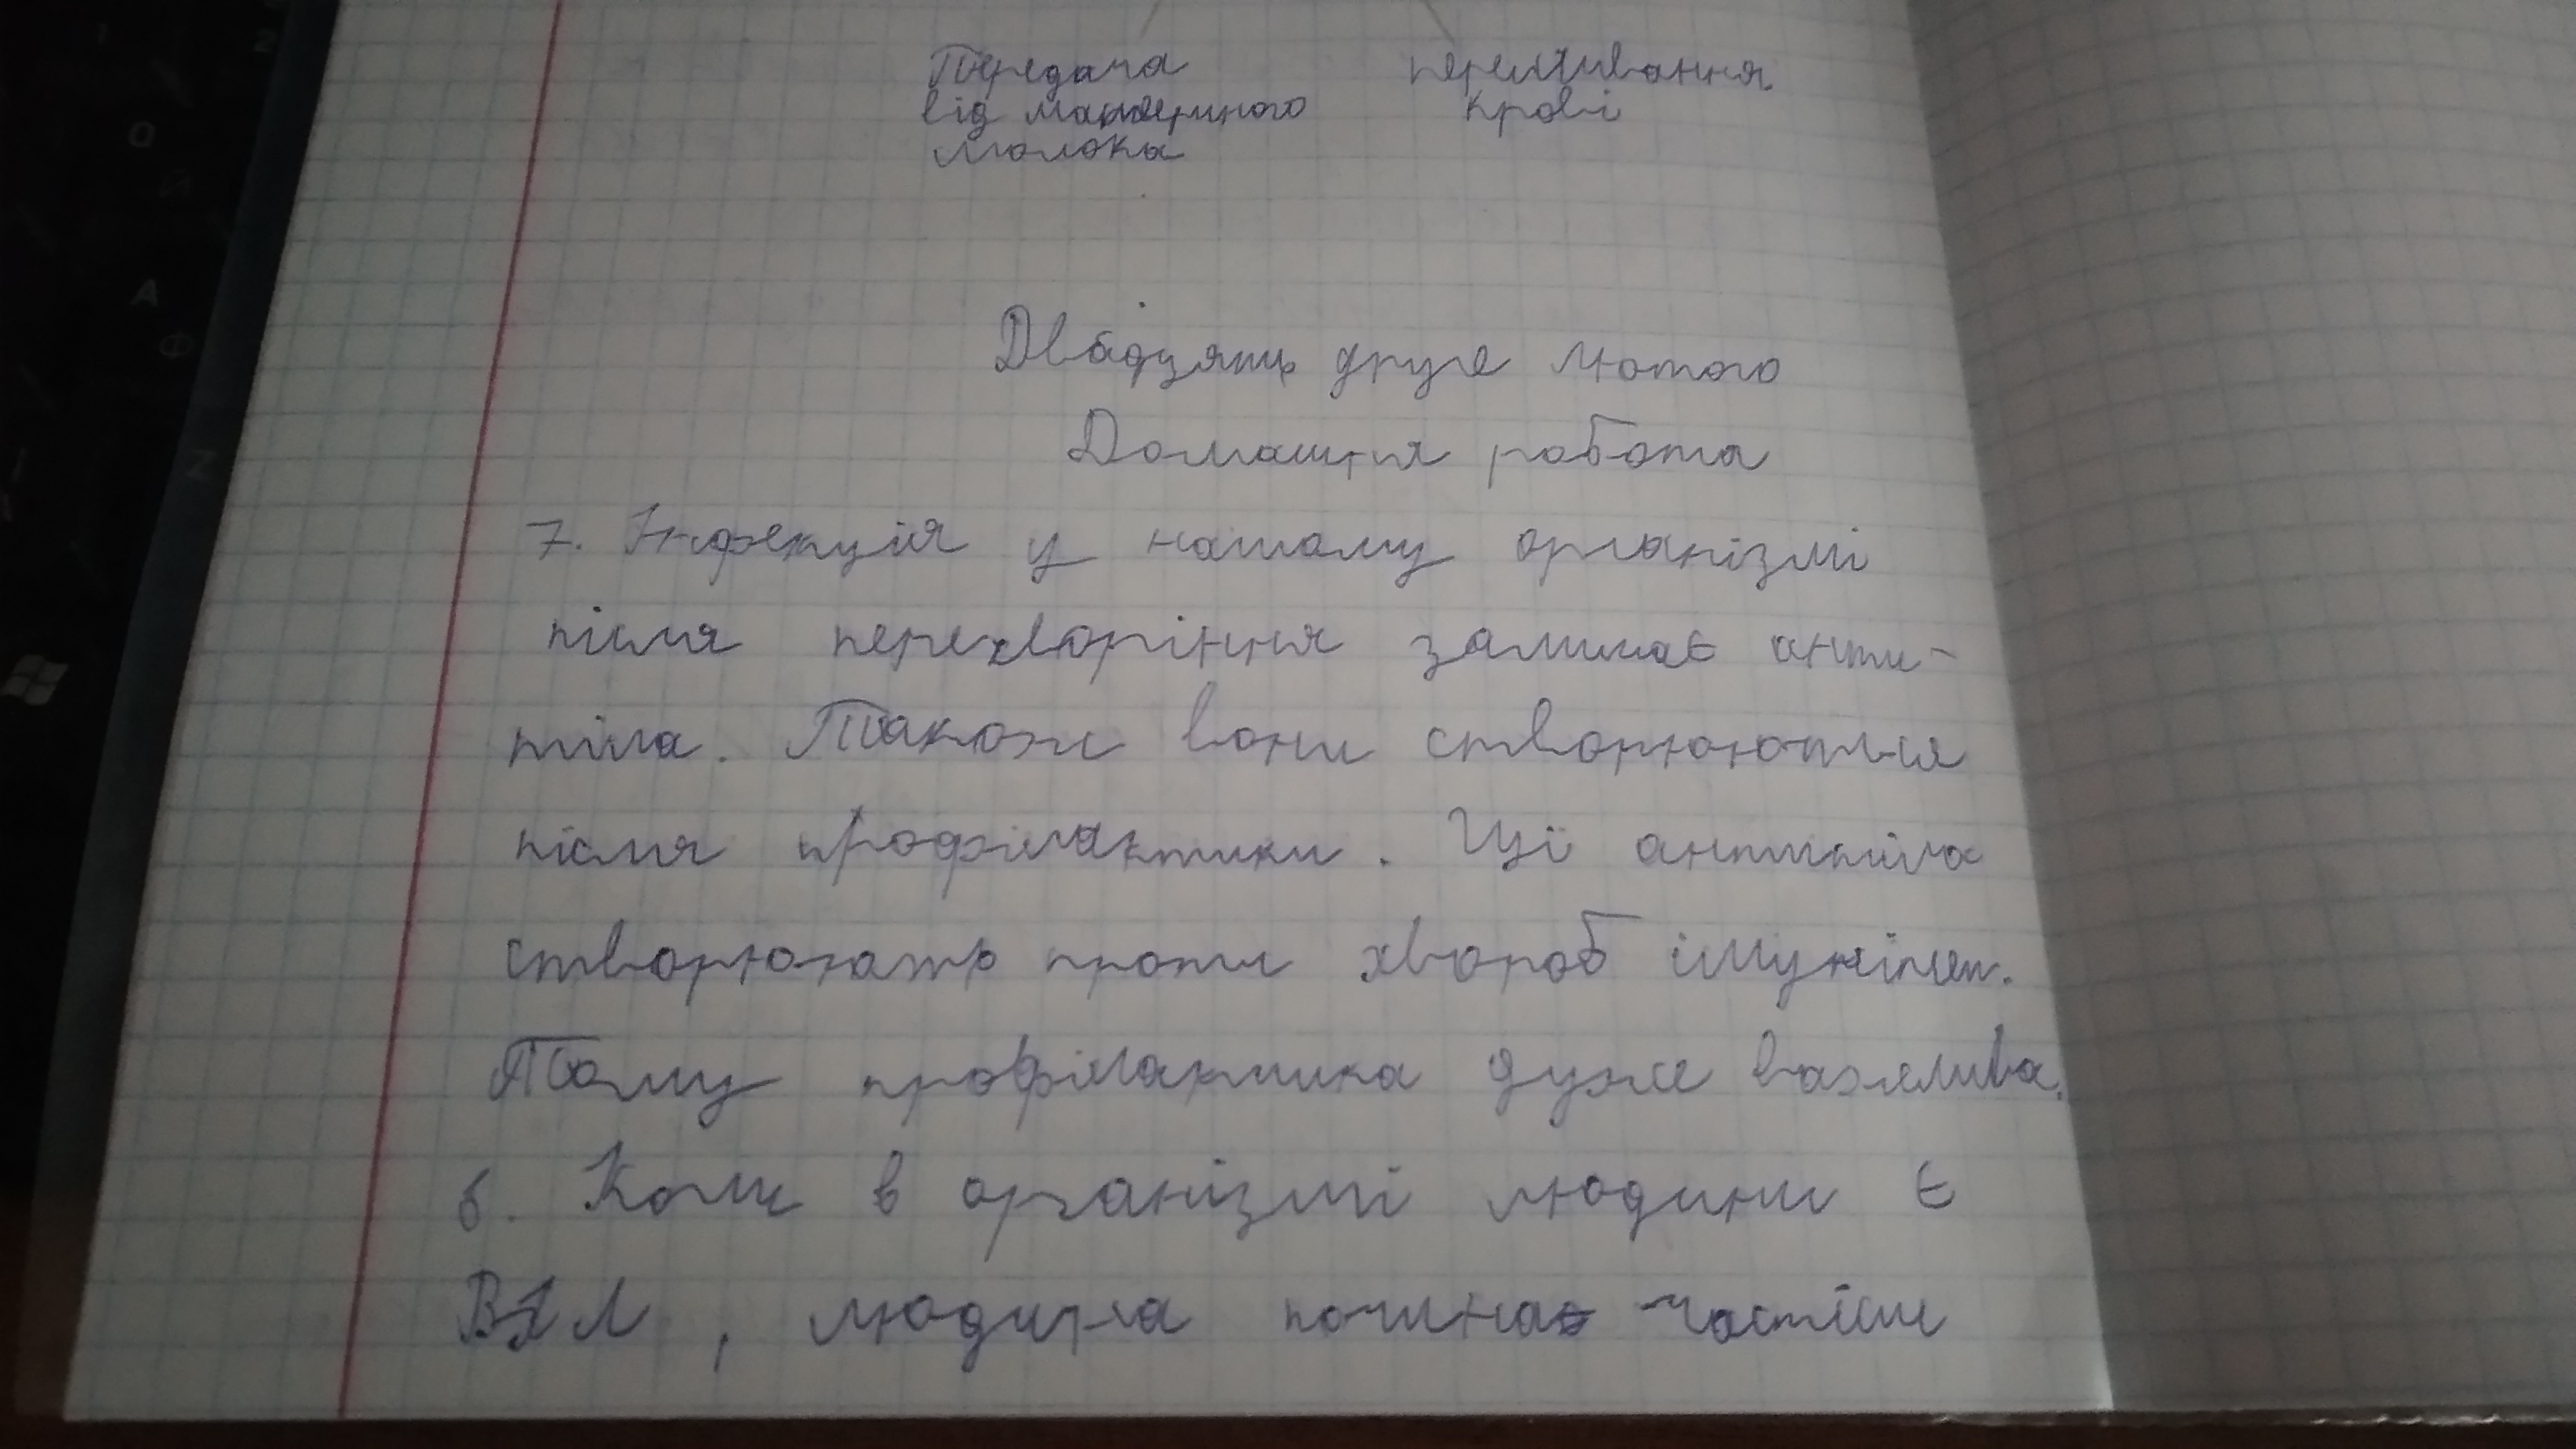 Передача переливання
від материного крові
молока
Двадцять друге лютого
Домашня робота
7. Інфекція у нашому організмі
після перехворіння залишає анти-
тіла. Також вони створюються
після профілактики. Ці антитіла
створюють проти хвороб імунітет.
Тому профілактика дуже важлива.
6. Коли в організмі людини є
ВІЛ, людина починає частіш